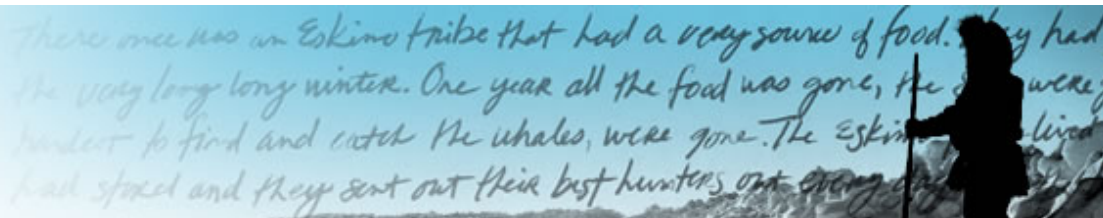 There once was an Eskimo tribe that had a very source of food. They had
the very long long winter. One year all the food was gone, the were
hardest to find and catch the whales, were gone. The Eskim lived
had stored and they sent out their best hunters out every day